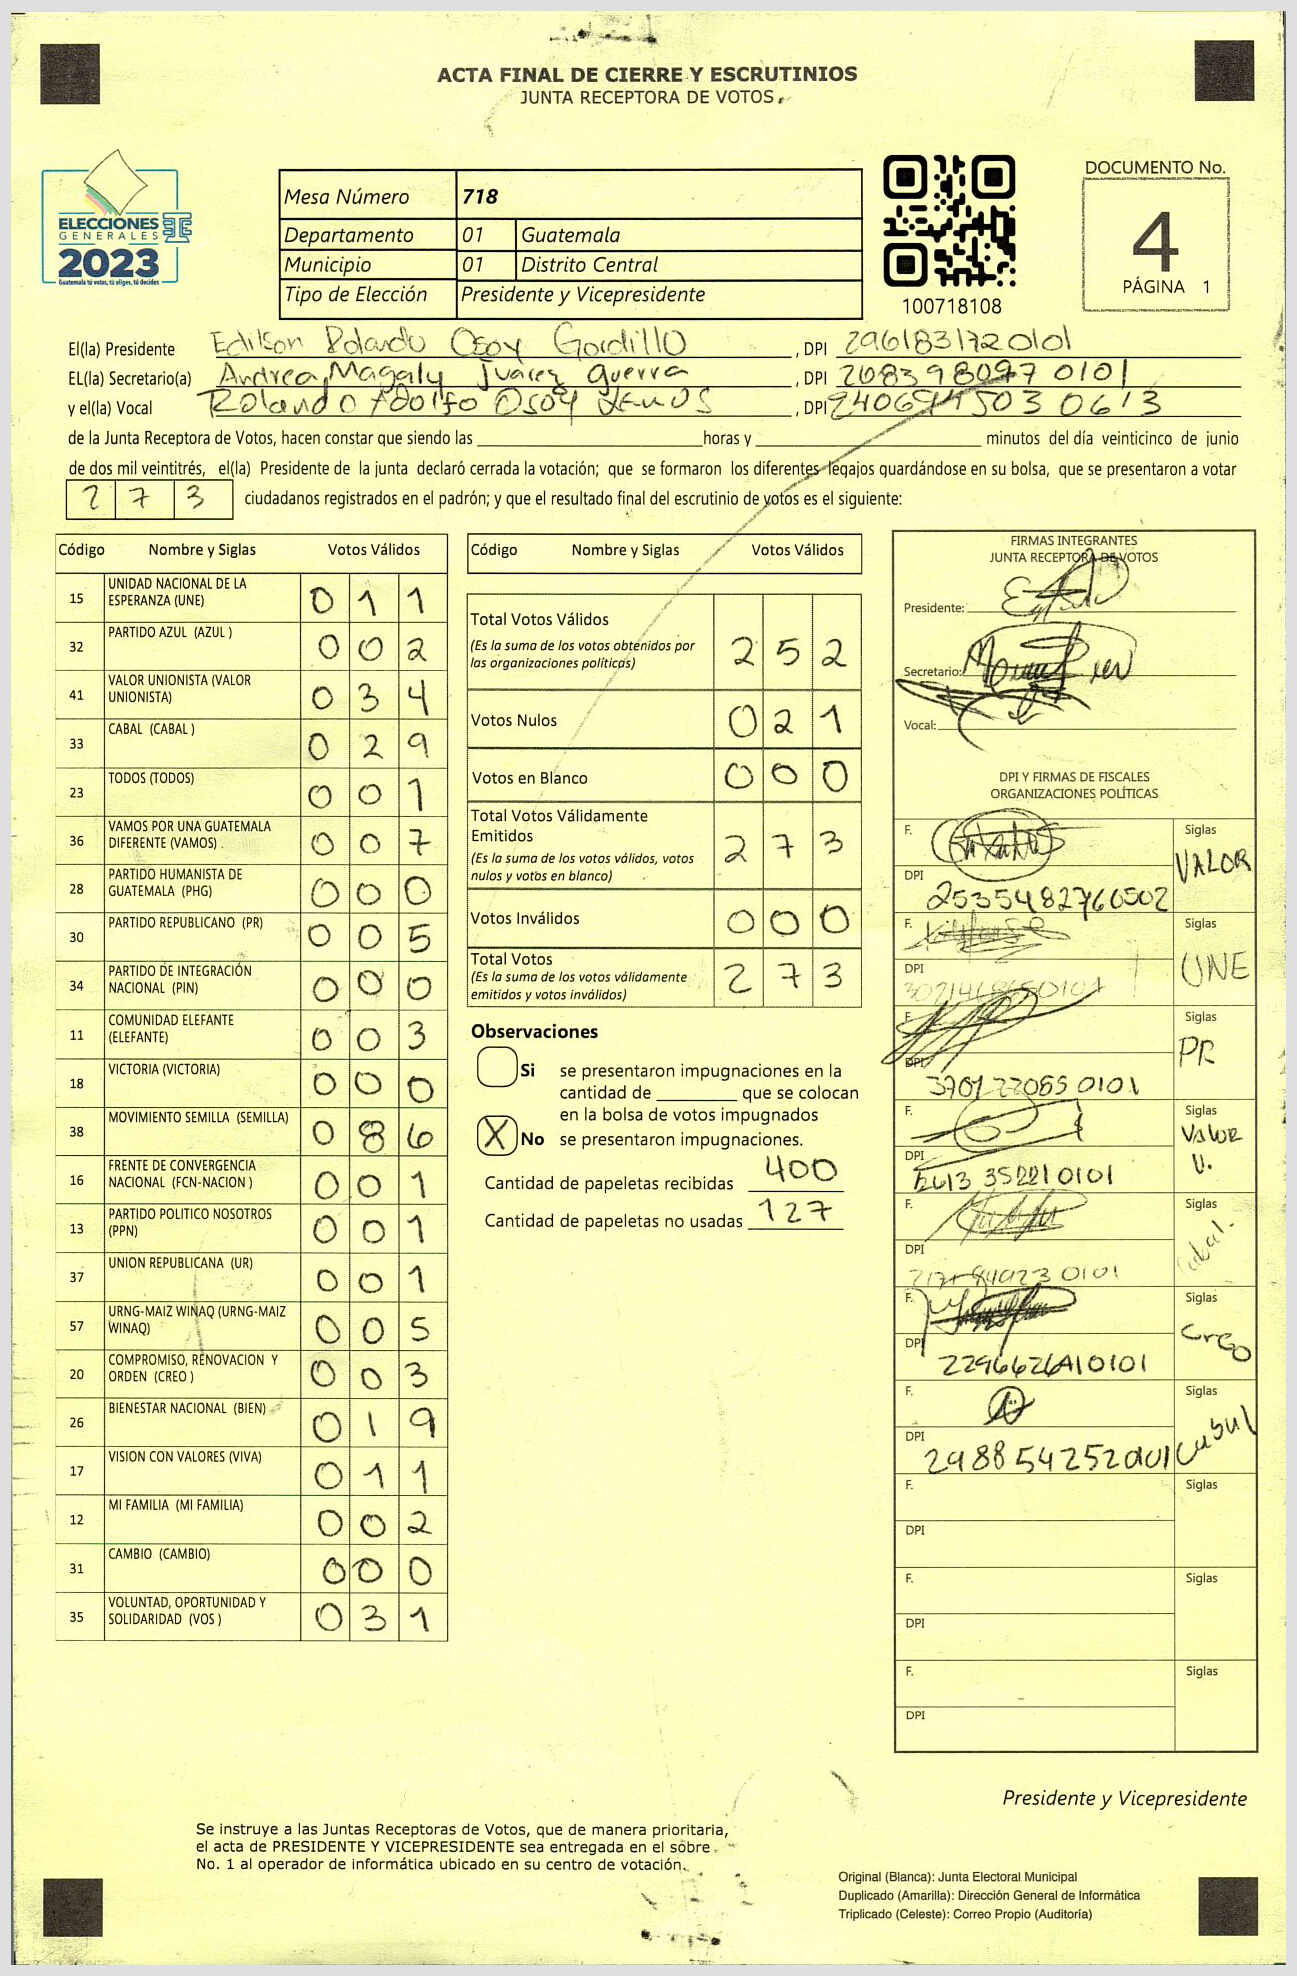 ACTA FINAL DE CIERRE Y ESCRUTINIOS
JUNTA RECEPTORA DE VOTOS
ELECCIONES
GENERALES
2023
Guatemala tú votas, tú eliges, tú decides
Mesa Número 718
Departamento 01 Guatemala
Municipio 01 Distrito Central
Tipo de Elección Presidente y Vicepresidente
100718108
DOCUMENTO No.
4
PÁGINA 1
El(la) Presidente Edilson Rolando Osoy Gordillo , DPI 2961831720101
EL(la) Secretario(a) Andrea Magaly Juárez Guerra , DPI 2083980970101
y el(la) Vocal Rolando Adolfo Osoy , DPI
de la Junta Receptora de Votos, hacen constar que siendo las horas y minutos del día veinticinco de junio
de dos mil veintitrés, el(la) Presidente de la junta declaró cerrada la votación; que se formaron los diferentes legajos quardándose en su bolsa, que se presentaron a votar
273 ciudadanos registrados en el padrón; y que el resultado final del escrutinio de votos es el siguiente:
Código Nombre y Siglas Votos Válidos
15 UNIDAD NACIONAL DE LA ESPERANZA (UNE) 011
32 PARTIDO AZUL (AZUL ) 002
41 VALOR UNIONISTA (VALOR UNIONISTA) 034
33 CABAL (CABAL ) 029
23 TODOS (TODOS) 001
36 VAMOS POR UNA GUATEMALA DIFERENTE (VAMOS) 007
28 PARTIDO HUMANISTA DE GUATEMALA (PHG) 000
30 PARTIDO REPUBLICANO (PR) 005
34 PARTIDO DE INTEGRACIÓN NACIONAL (PIN) 000
11 COMUNIDAD ELEFANTE (ELEFANTE) 003
18 VICTORIA (VICTORIA) 000
38 MOVIMIENTO SEMILLA (SEMILLA) 086
16 FRENTE DE CONVERGENCIA NACIONAL (FCN-NACION ) 001
13 PARTIDO POLITICO NOSOTROS (PPN) 001
37 UNION REPUBLICANA (UR) 001
57 URNG-MAIZ WINAQ (URNG-MAIZ WINAQ) 005
20 COMPROMISO, RENOVACION Y ORDEN (CREO ) 003
26 BIENESTAR NACIONAL (BIEN) 019
17 VISION CON VALORES (VIVA) 011
12 MI FAMILIA (MI FAMILIA) 002
31 CAMBIO (CAMBIO) 000
35 VOLUNTAD, OPORTUNIDAD Y SOLIDARIDAD (VOS ) 031
Código Nombre y Siglas Votos Válidos
Total Votos Válidos 252
(Es la suma de los votos obtenidos por
las organizaciones políticas)
Votos Nulos 021
Votos en Blanco 000
Total Votos Válidamente
Emitidos 273
(Es la suma de los votos válidos, votos
nulos y votos en blanco)
Votos Inválidos 000
Total Votos 273
(Es la suma de los votos válidamente
emitidos y votos inválidos)
Observaciones
Si se presentaron impugnaciones en la
cantidad de que se colocan
en la bolsa de votos impugnados
X No se presentaron impugnaciones.
Cantidad de papeletas recibidas 400
Cantidad de papeletas no usadas 127
FIRMAS INTEGRANTES
JUNTA RECEPTORA DE VOTOS
Presidente:
Secretario:
Vocal:
DPI Y FIRMAS DE FISCALES
ORGANIZACIONES POLÍTICAS
F. Siglas VALOR
DPI 2535482760502
F. Siglas UNE
DPI
F. Siglas PR
DPI 3701220850101
F. Siglas Valor U.
DPI
F. Siglas Cabal.
DPI
F. Siglas Creo
DPI
F. Siglas
DPI
F. Siglas
DPI
F. Siglas
DPI
F. Siglas
DPI
Presidente y Vicepresidente
Se instruye a las Juntas Receptoras de Votos, que de manera prioritaria,
el acta de PRESIDENTE Y VICEPRESIDENTE sea entregada en el sobre
No. 1 al operador de informática ubicado en su centro de votación.
Original (Blanca): Junta Electoral Municipal
Duplicado (Amarilla): Dirección General de Informática
Triplicado (Celeste): Correo Propio (Auditoría)